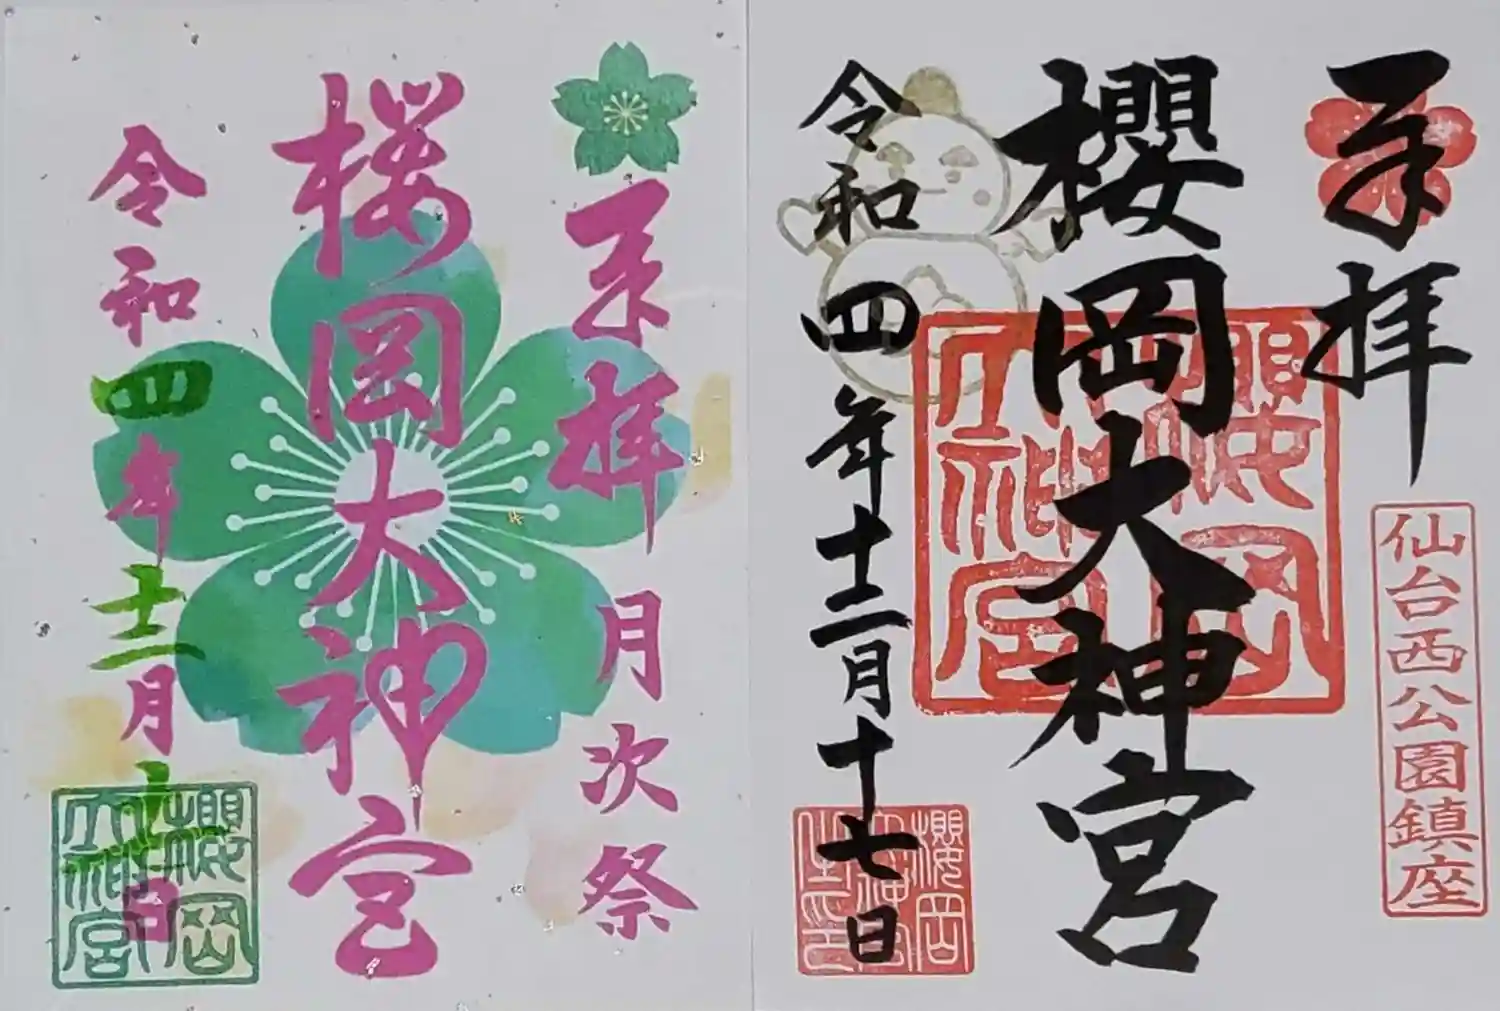 奉拝
仙台西公園鎮座
櫻岡大神宮
櫻岡大神宮
令和四年十二月十七日
櫻岡大神宮之印
奉拝 月次祭
桜岡大神宮
令和四年十二月 日
櫻岡大神宮